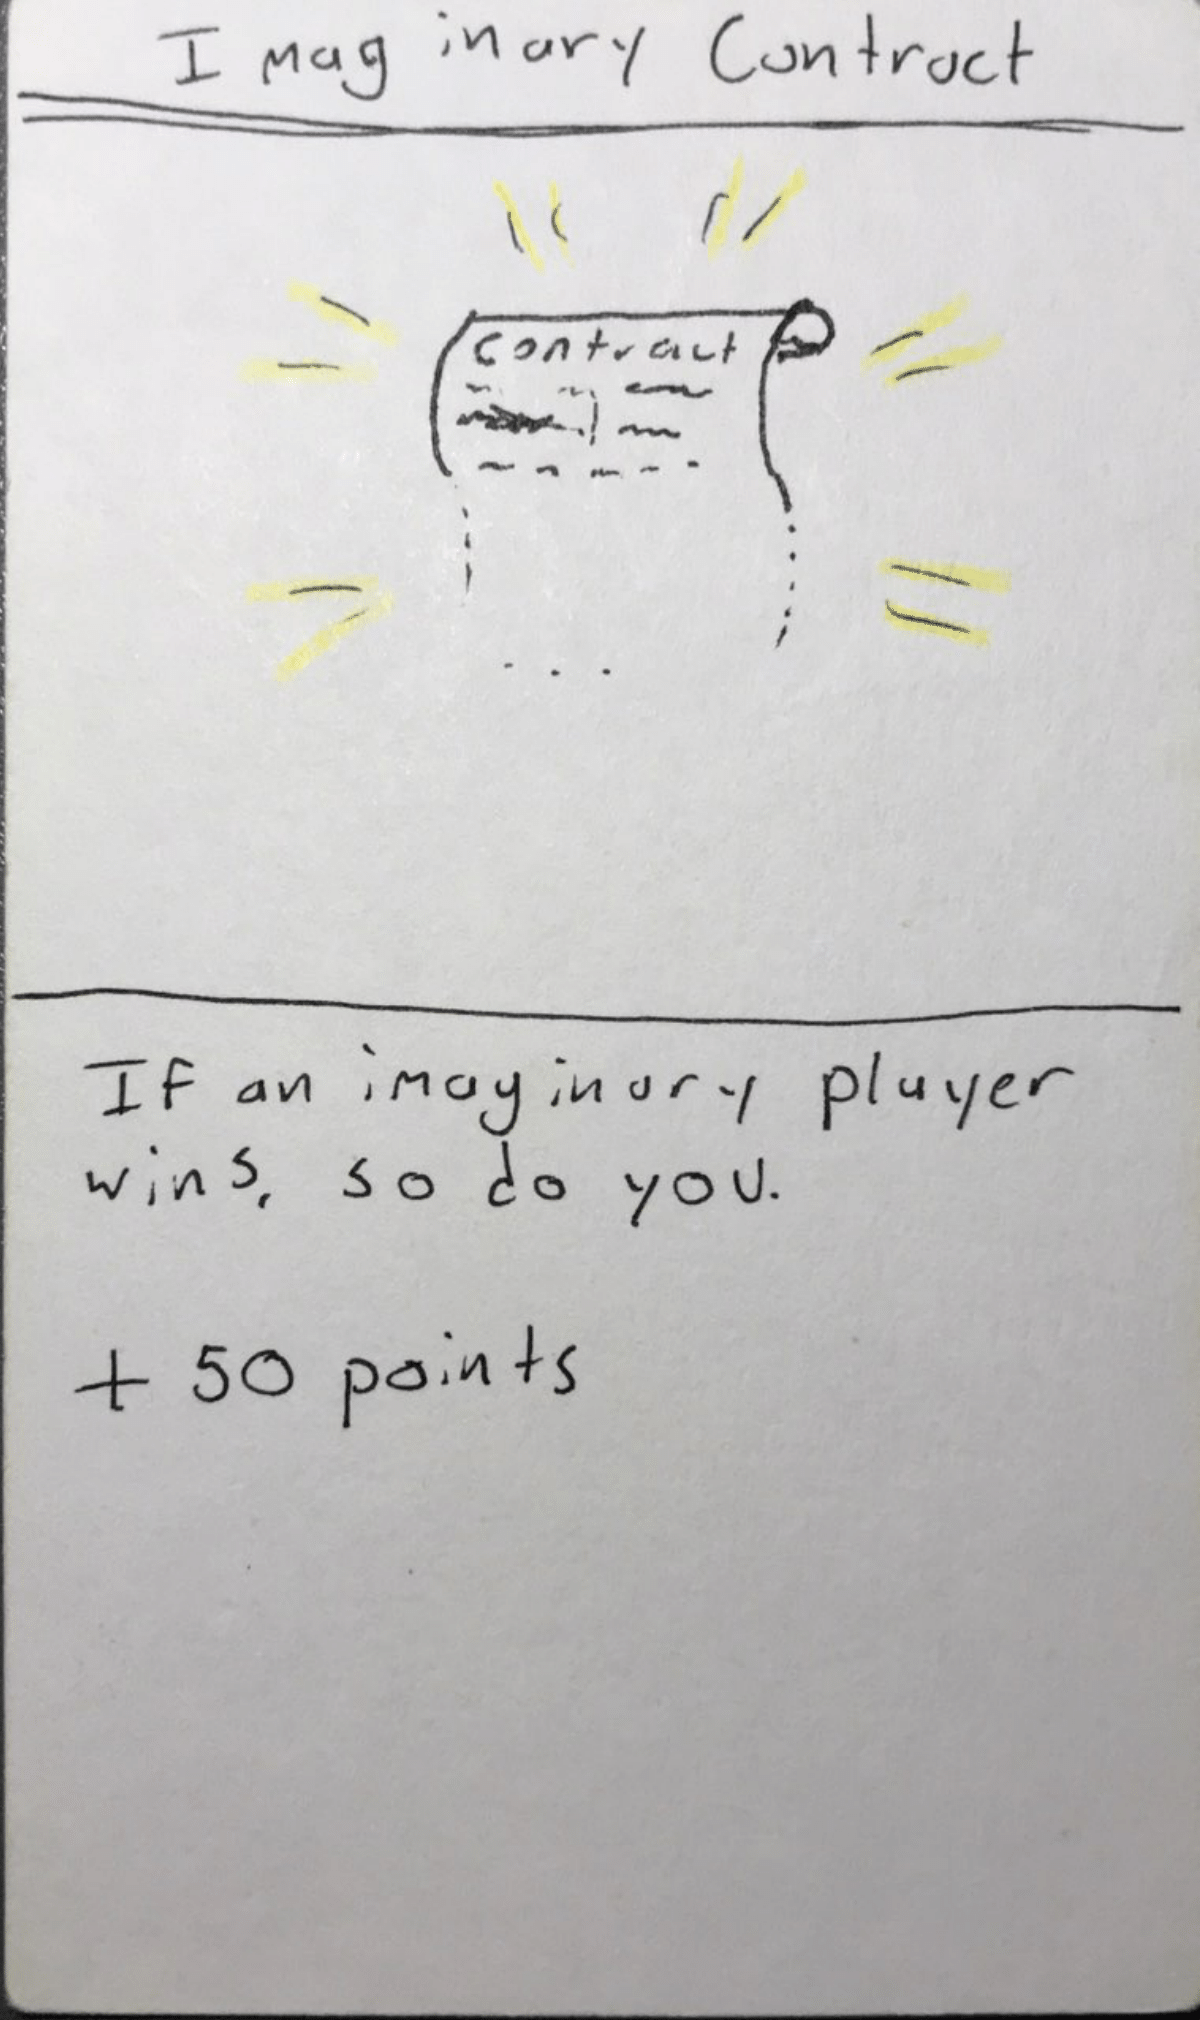 Imaginary Contract
contract
If an imaginary player
wins, so do you.
+ 50 points